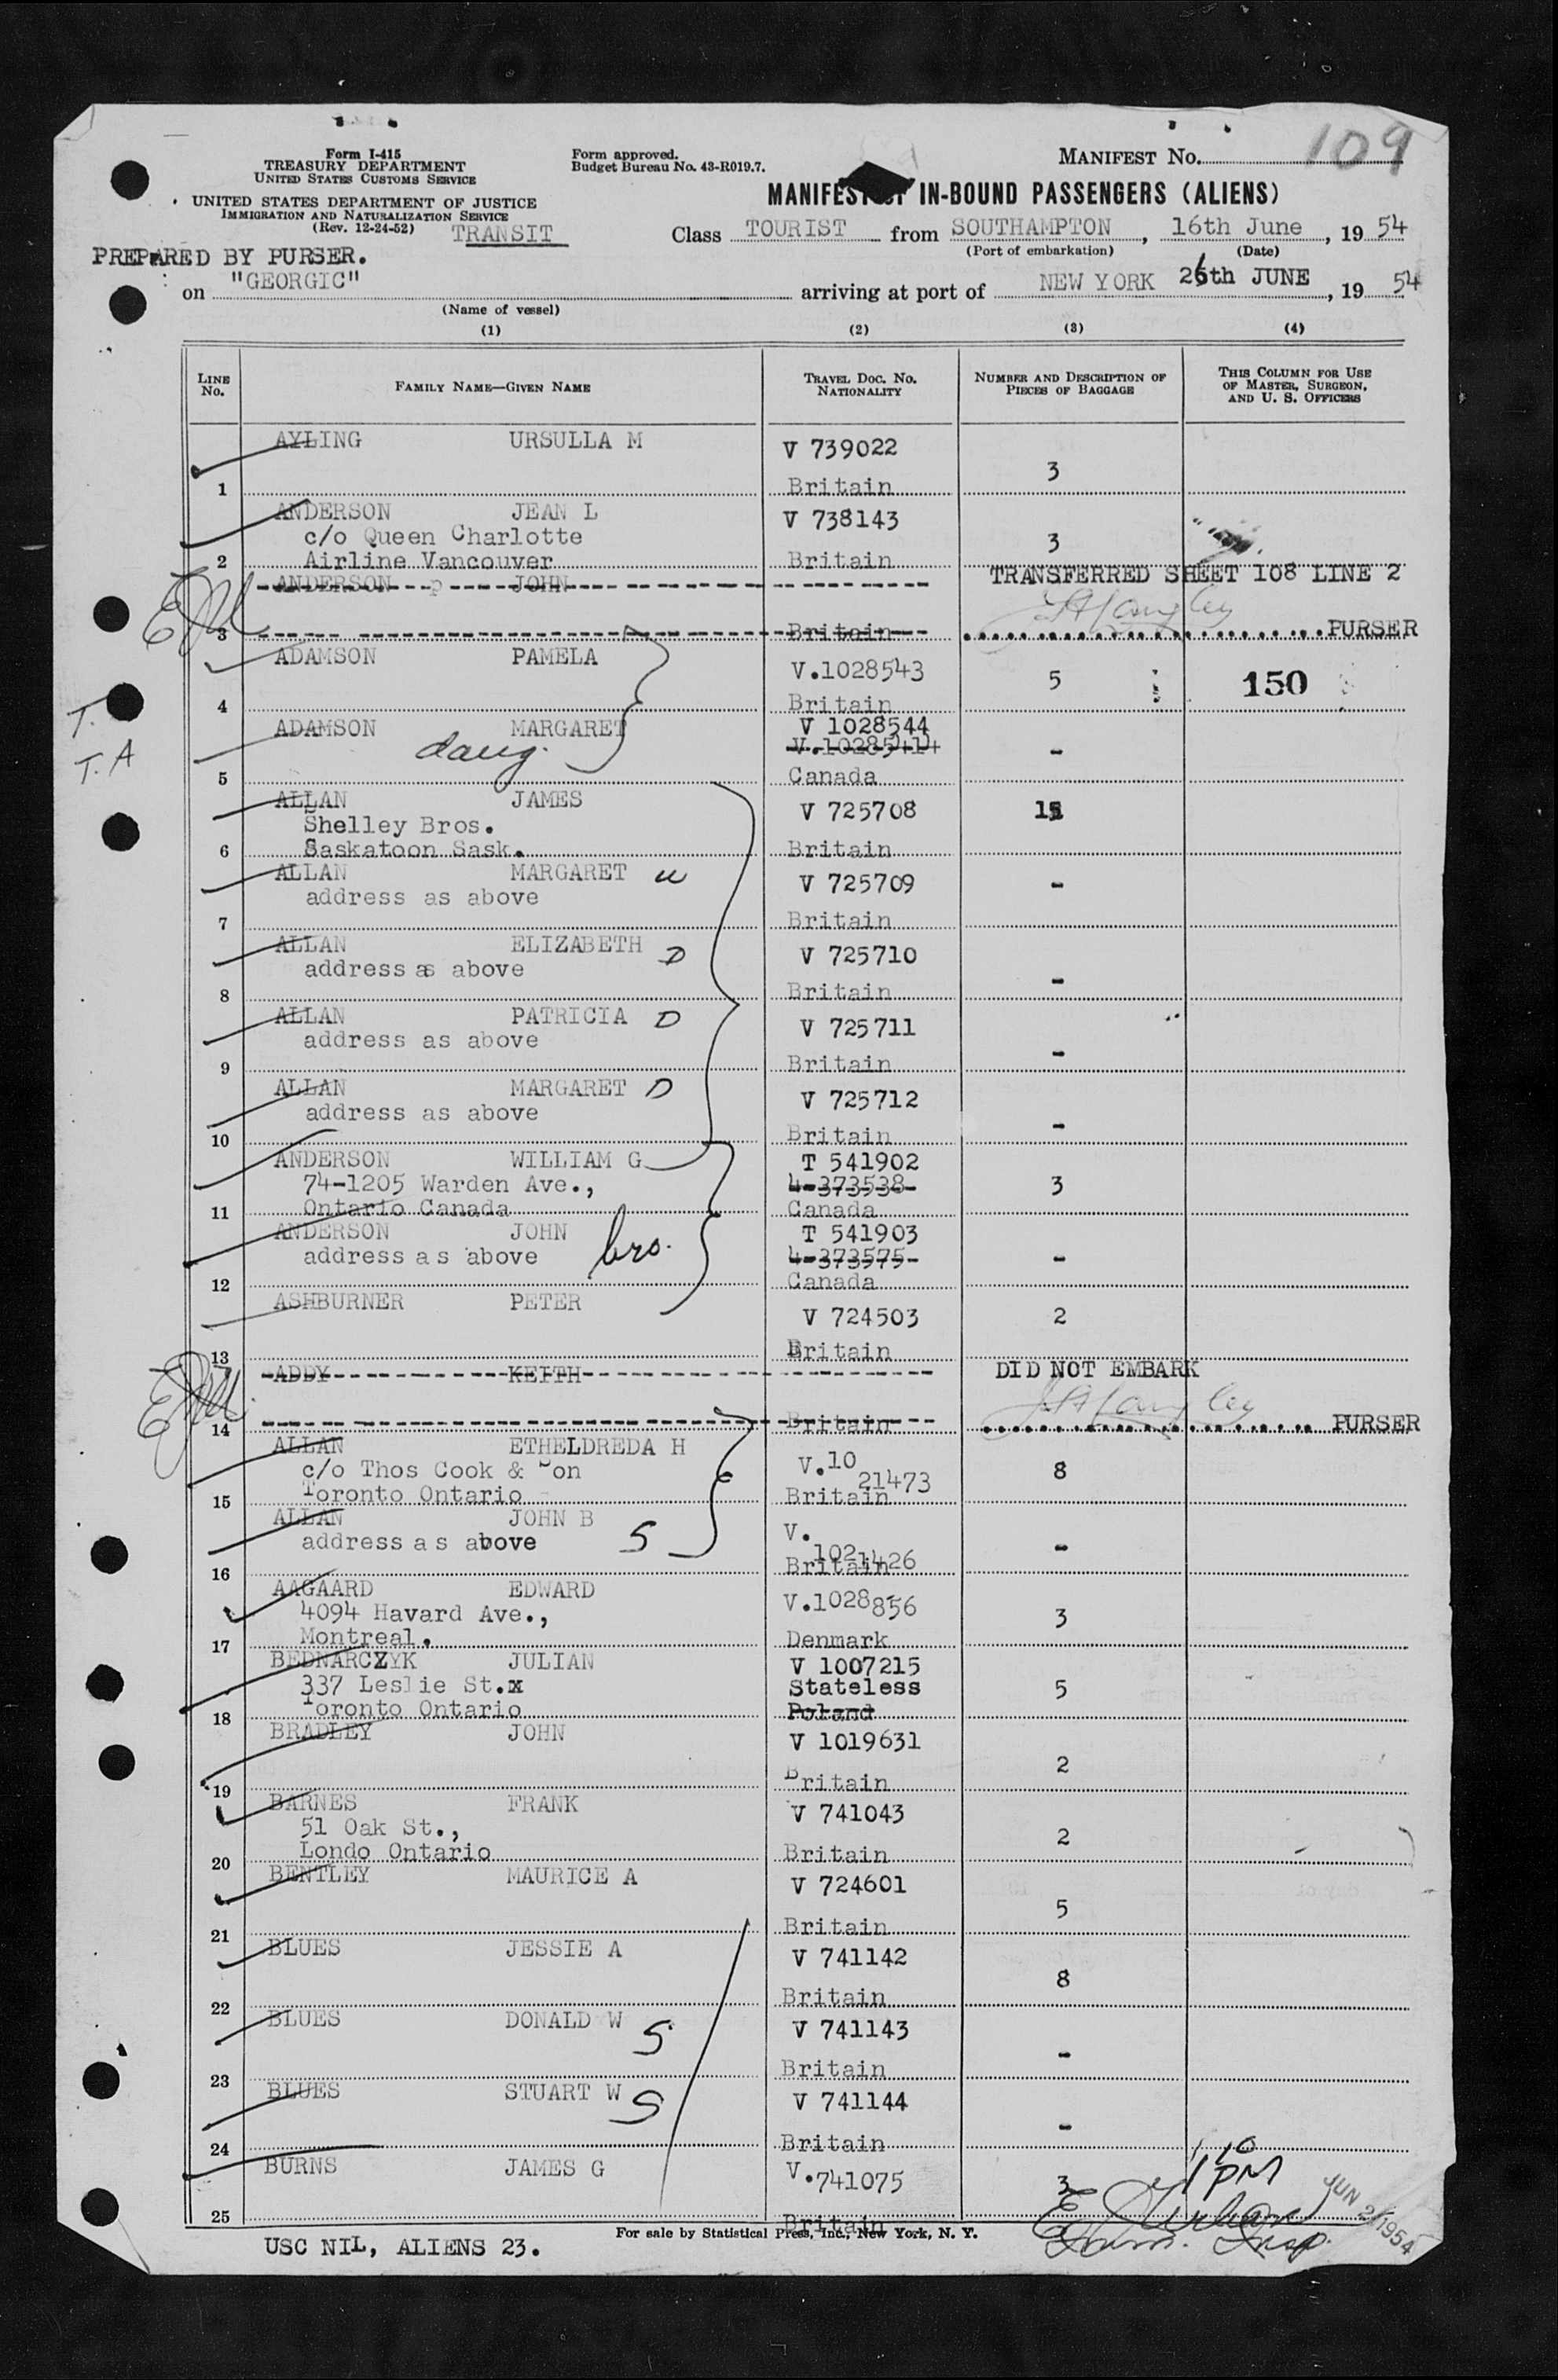 109
Form I-415
TREASURY DEPARTMENT
UNITED STATES CUSTOMS SERVICE
UNITED STATES DEPARTMENT OF JUSTICE
IMMIGRATION AND NATURALIZATION SERVICE
(Rev. 12-24-52)
TRANSIT
Form approved.
Budget Bureau No. 43-R019.7.
MANIFEST No.
MANIFEST OF IN-BOUND PASSENGERS (ALIENS)
Class TOURIST from SOUTHAMPTON, 16th June, 19 54
(Port of embarkation) (Date)
PREPARED BY PURSER.
on "GEORGIC" arriving at port of NEW YORK 26th JUNE, 19 54
(Name of vessel)
(1) (2) (3) (4)
LINE No. FAMILY NAME—GIVEN NAME TRAVEL DOC. No. NATIONALITY NUMBER AND DESCRIPTION OF PIECES OF BAGGAGE THIS COLUMN FOR USE OF MASTER, SURGEON, AND U. S. OFFICERS
AYLING URSULLA M V 739022
3
1 Britain
ANDERSON JEAN L V 738143
c/o Queen Charlotte 3
2 Airline Vancouver Britain
ANDERSON P JOHN TRANSFERRED SHEET 108 LINE 2
3 Britain PURSER
ADAMSON PAMELA V.1028543 5 150
T.
4 Britain
ADAMSON MARGARET V 1028544
daug. V.1028544 -
T.A
5 Canada
ALLAN JAMES V 725708
Shelley Bros.
6 Saskatoon Sask. Britain
ALLAN MARGARET W V 725709 -
address as above
7 Britain
ALLAN ELIZABETH D V 725710
address as above -
8 Britain
ALLAN PATRICIA D V 725711
address as above -
9 Britain
ALLAN MARGARET D V 725712
address as above -
10 Britain
ANDERSON WILLIAM G T 541902
74-1205 Warden Ave., 4-373538 3
11 Ontario Canada Canada
ANDERSON JOHN T 541903
address as above bro. 4-373575 -
12 Canada
ASHBURNER PETER V 724503 2
13 Britain
ADDY KEITH DID NOT EMBARK
14 Britain PURSER
ALLAN ETHELDREDA H V.10 21473 8
c/o Thos Cook & Son
15 Toronto Ontario Britain
ALLAN JOHN B V. 1021426
address as above S -
16 Britain
AAGAARD EDWARD V.1028856
4094 Havard Ave., 3
17 Montreal. Denmark
BEDNARCZYK JULIAN V 1007215
337 Leslie St.x Stateless 5
18 Toronto Ontario Poland
BRADLEY JOHN V 1019631
2
19 Britain
BARNES FRANK V 741043
51 Oak St., 2
20 Londo Ontario Britain
BENTLEY MAURICE A V 724601
5
21 Britain
BLUES JESSIE A V 741142
8
22 Britain
BLUES DONALD W S V 741143
-
23 Britain
BLUES STUART W S V 741144
-
24 Britain
BURNS JAMES G V.741075 3
25 Britain
1 PM
Imm. Insp.
JUN 2 1954
For sale by Statistical Press, Inc., New York, N. Y.
USC NIL, ALIENS 23.